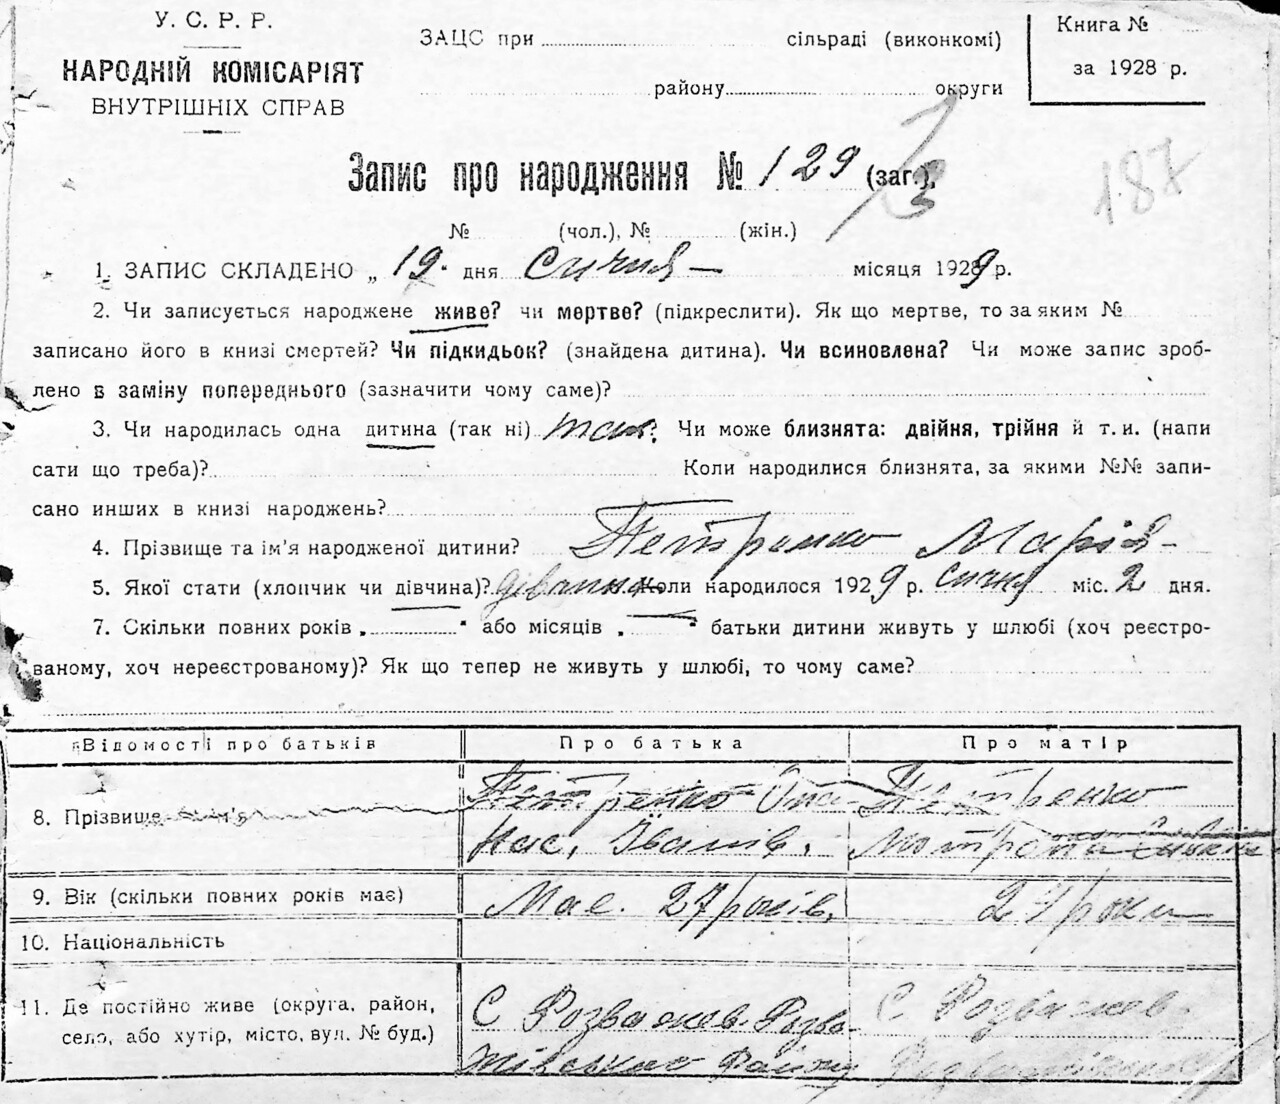 У. С. Р. Р.
НАРОДНІЙ КОМІСАРІЯТ
ВНУТРІШНІХ СПРАВ
ЗАЦС при сільраді (виконкомі)
району округи
Книга №
за 1928 р.
187
Запис про народження № 129 (заг.),
№ (чол.), № (жін.)
1. ЗАПИС СКЛАДЕНО „ 19 " дня Січня місяця 1929 р.
2. Чи записується народжене живе? чи мертве? (підкреслити). Як що мертве, то за яким №
записано його в книзі смертей? Чи підкидьок? (знайдена дитина). Чи всиновлена? Чи може запис зроб-
лено в заміну попереднього (зазначити чому саме)?
3. Чи народилась одна дитина (так ні) так? Чи може близнята: двійня, трійня й т. и. (напи
сати що треба)? Коли народилися близнята, за якими №№ запи-
сано инших в книзі народжень?
4. Прізвище та ім'я народженої дитини? Петренко Марія
5. Якої стати (хлопчик чи дівчина)? коли народилося 1929 р. січня міс. 2 дня.
7. Скільки повних років „ " або місяців „ " батьки дитини живуть у шлюбі (хоч реєстро-
ваному, хоч нереєстрованому)? Як що тепер не живуть у шлюбі, то чому саме?
Відомості про батьків Про батька Про матір
8. Прізвище ім'я Петренко Опа- Петренко
нас, Іванів. Мотрона
9. Вік (скільки повних років має) Має. 27 років, 27 роки
10. Національність
11. Де постійно живе (округа, район, С Розважев. Розва- С Розважев.
село, або хутір, місто, вул. № буд.) жівського Району